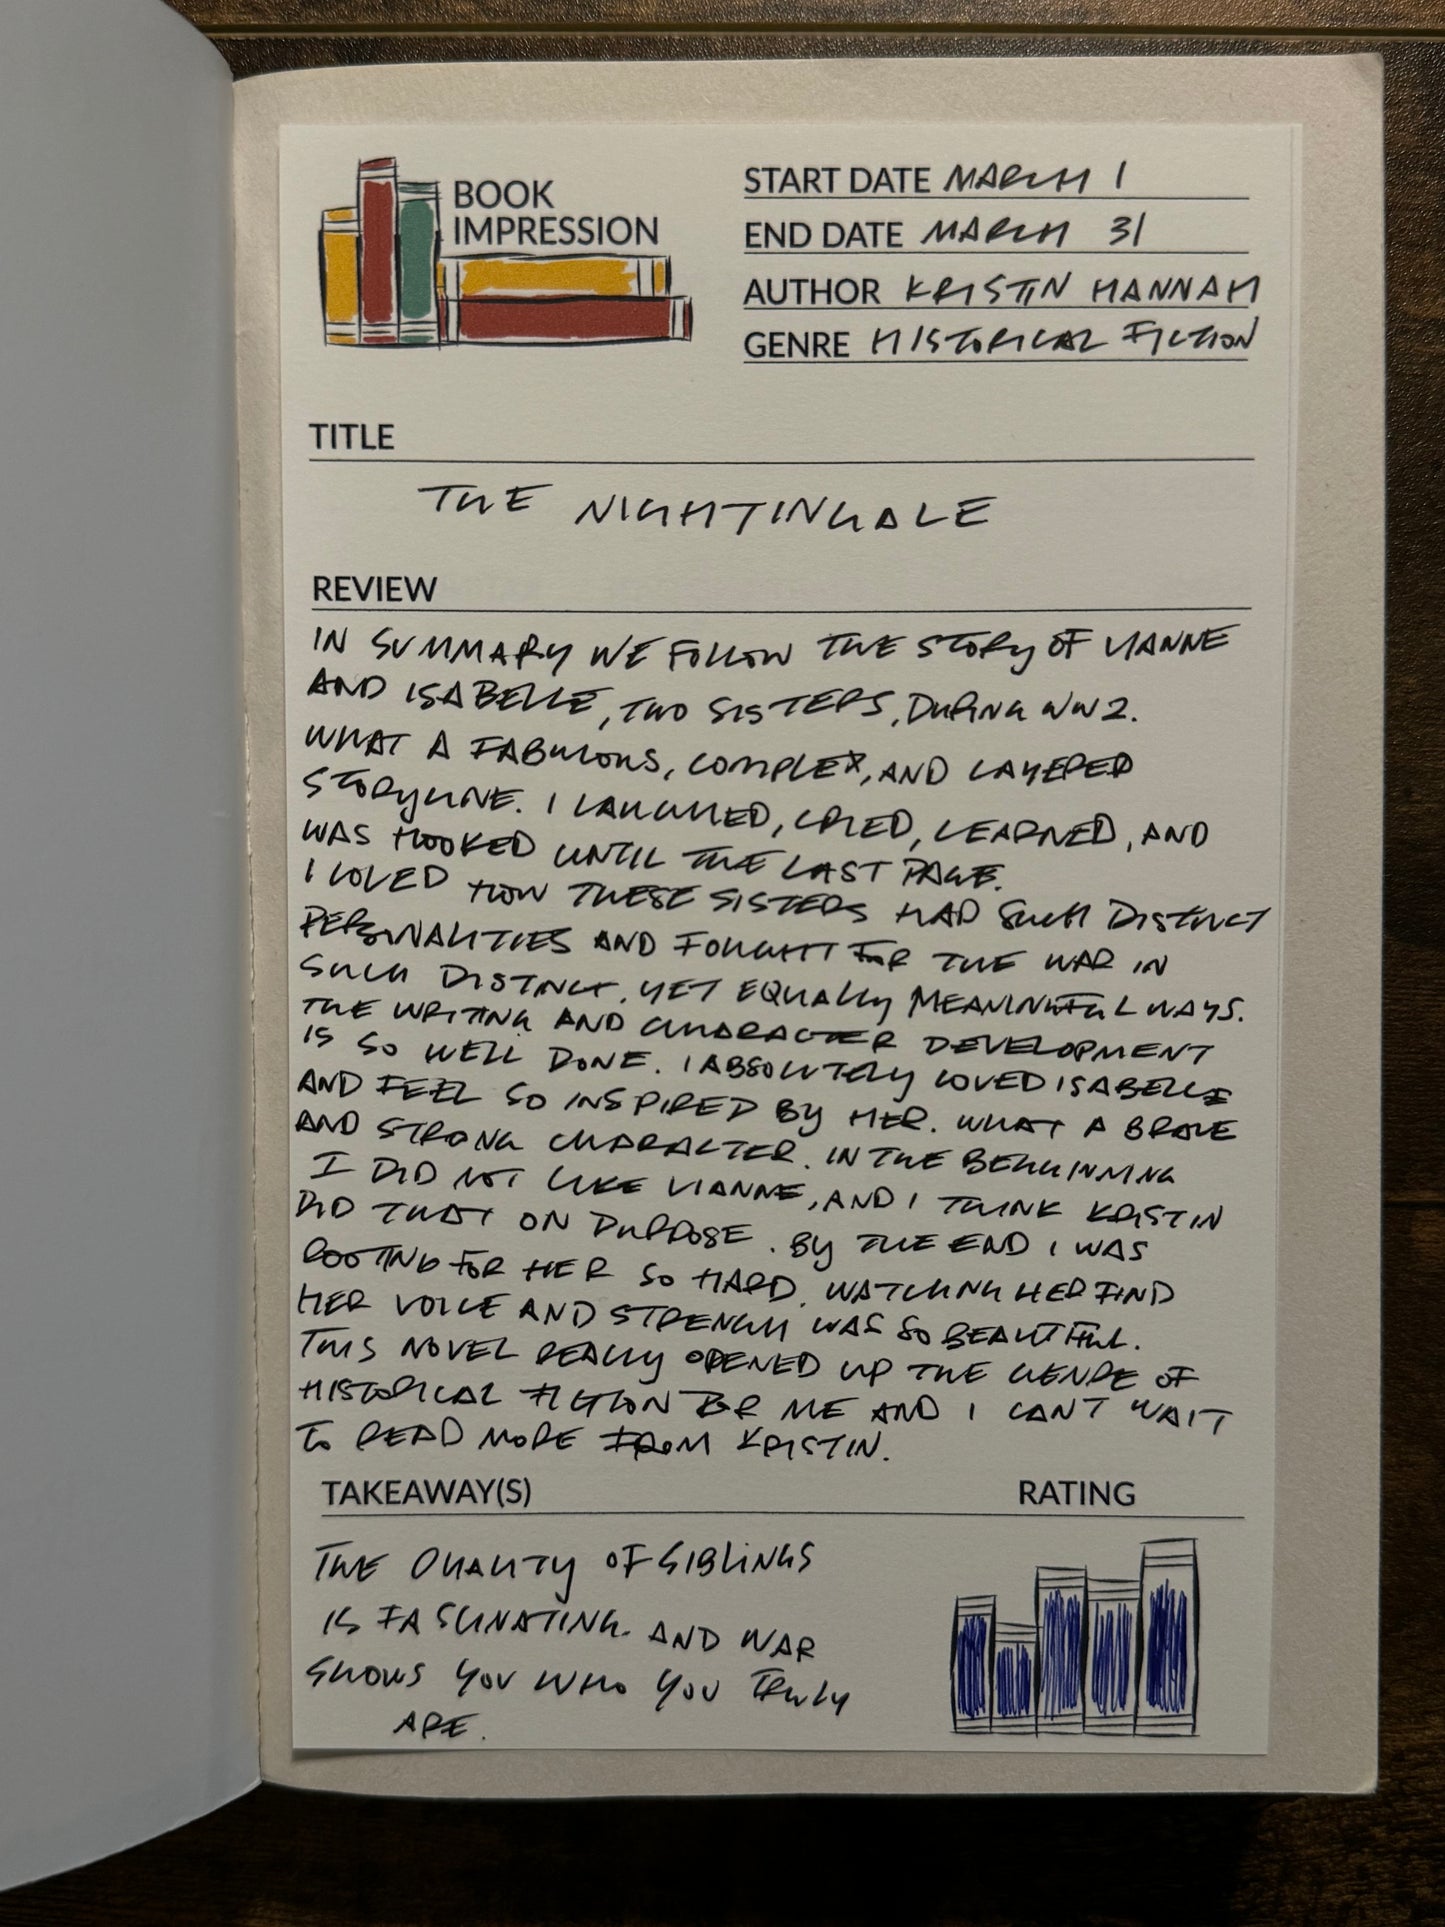 BOOK
IMPRESSION
START DATE MARCH 1
END DATE MARCH 31
AUTHOR KRISTIN HANNAH
GENRE HISTORICAL FICTION
TITLE
THE NIGHTINGALE
REVIEW
IN SUMMARY WE FOLLOW THE STORY OF VIANNE
AND ISABELLE, TWO SISTERS, DURING WW2.
WHAT A FABULOUS, COMPLEX, AND LAYERED
STORYLINE. I LAUGHED, CRIED, LEARNED, AND
WAS HOOKED UNTIL THE LAST PAGE.
I LOVED HOW THESE SISTERS HAD SUCH DISTINCT
PERSONALITIES AND FOUGHT FOR THE WAR IN
SUCH DISTINCT, YET EQUALLY MEANINGFUL WAYS.
THE WRITING AND CHARACTER DEVELOPMENT
IS SO WELL DONE. I ABSOLUTELY LOVED ISABELLE
AND FEEL SO INSPIRED BY HER. WHAT A BRAVE
AND STRONG CHARACTER. IN THE BEGGINNING
I DID NOT LIKE VIANNE, AND I THINK KRISTIN
DID THAT ON PURPOSE. BY THE END I WAS
ROOTING FOR HER SO HARD. WATCHING HER FIND
HER VOICE AND STRENGH WAS SO BEAUTIFUL.
THIS NOVEL REALLY OPENED UP THE GENRE OF
HISTORICAL FICTION FOR ME AND I CAN'T WAIT
TO READ MORE FROM KRISTIN.
TAKEAWAY(S)
RATING
THE QUALITY OF SIBLINGS
IS FASCINATING. AND WAR
SHOWS YOU WHO YOU TRULY
ARE.